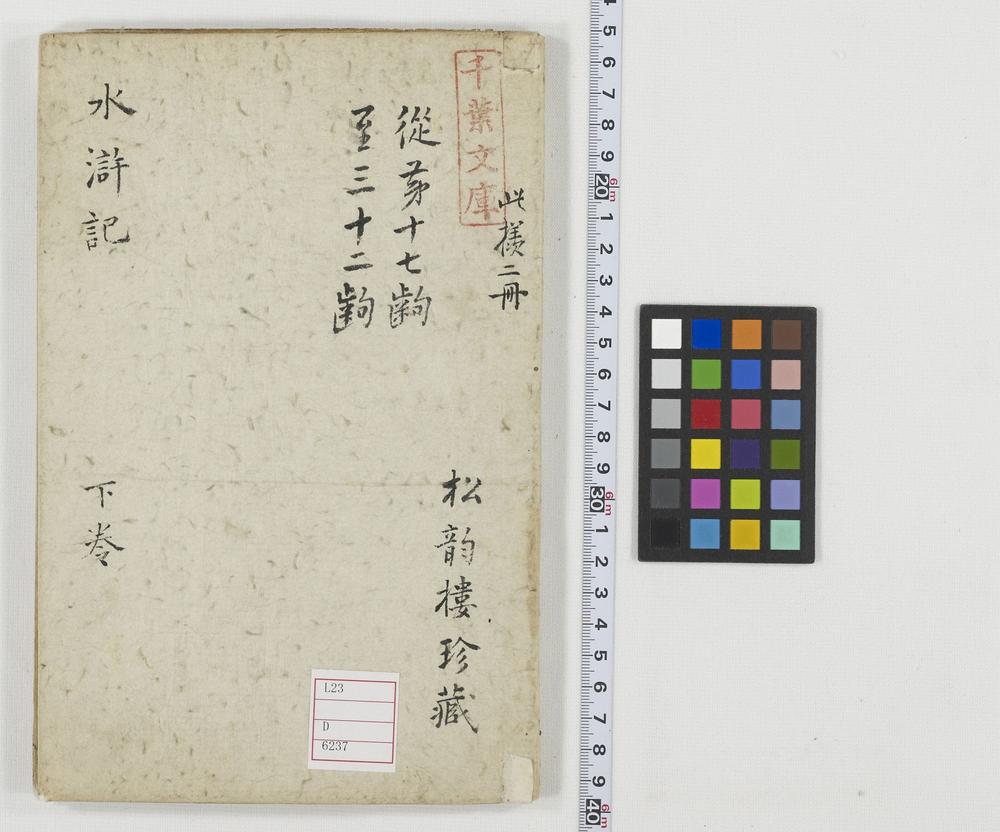 千葉文庫
此様二冊
從第十七齣
至三十二齣
水滸記
下卷
松韵樓珍藏
L23
D
6237
5
6
7
8
9
20
1
2
3
4
5
6
7
8
9
30
1
2
3
4
5
6
7
8
9
40